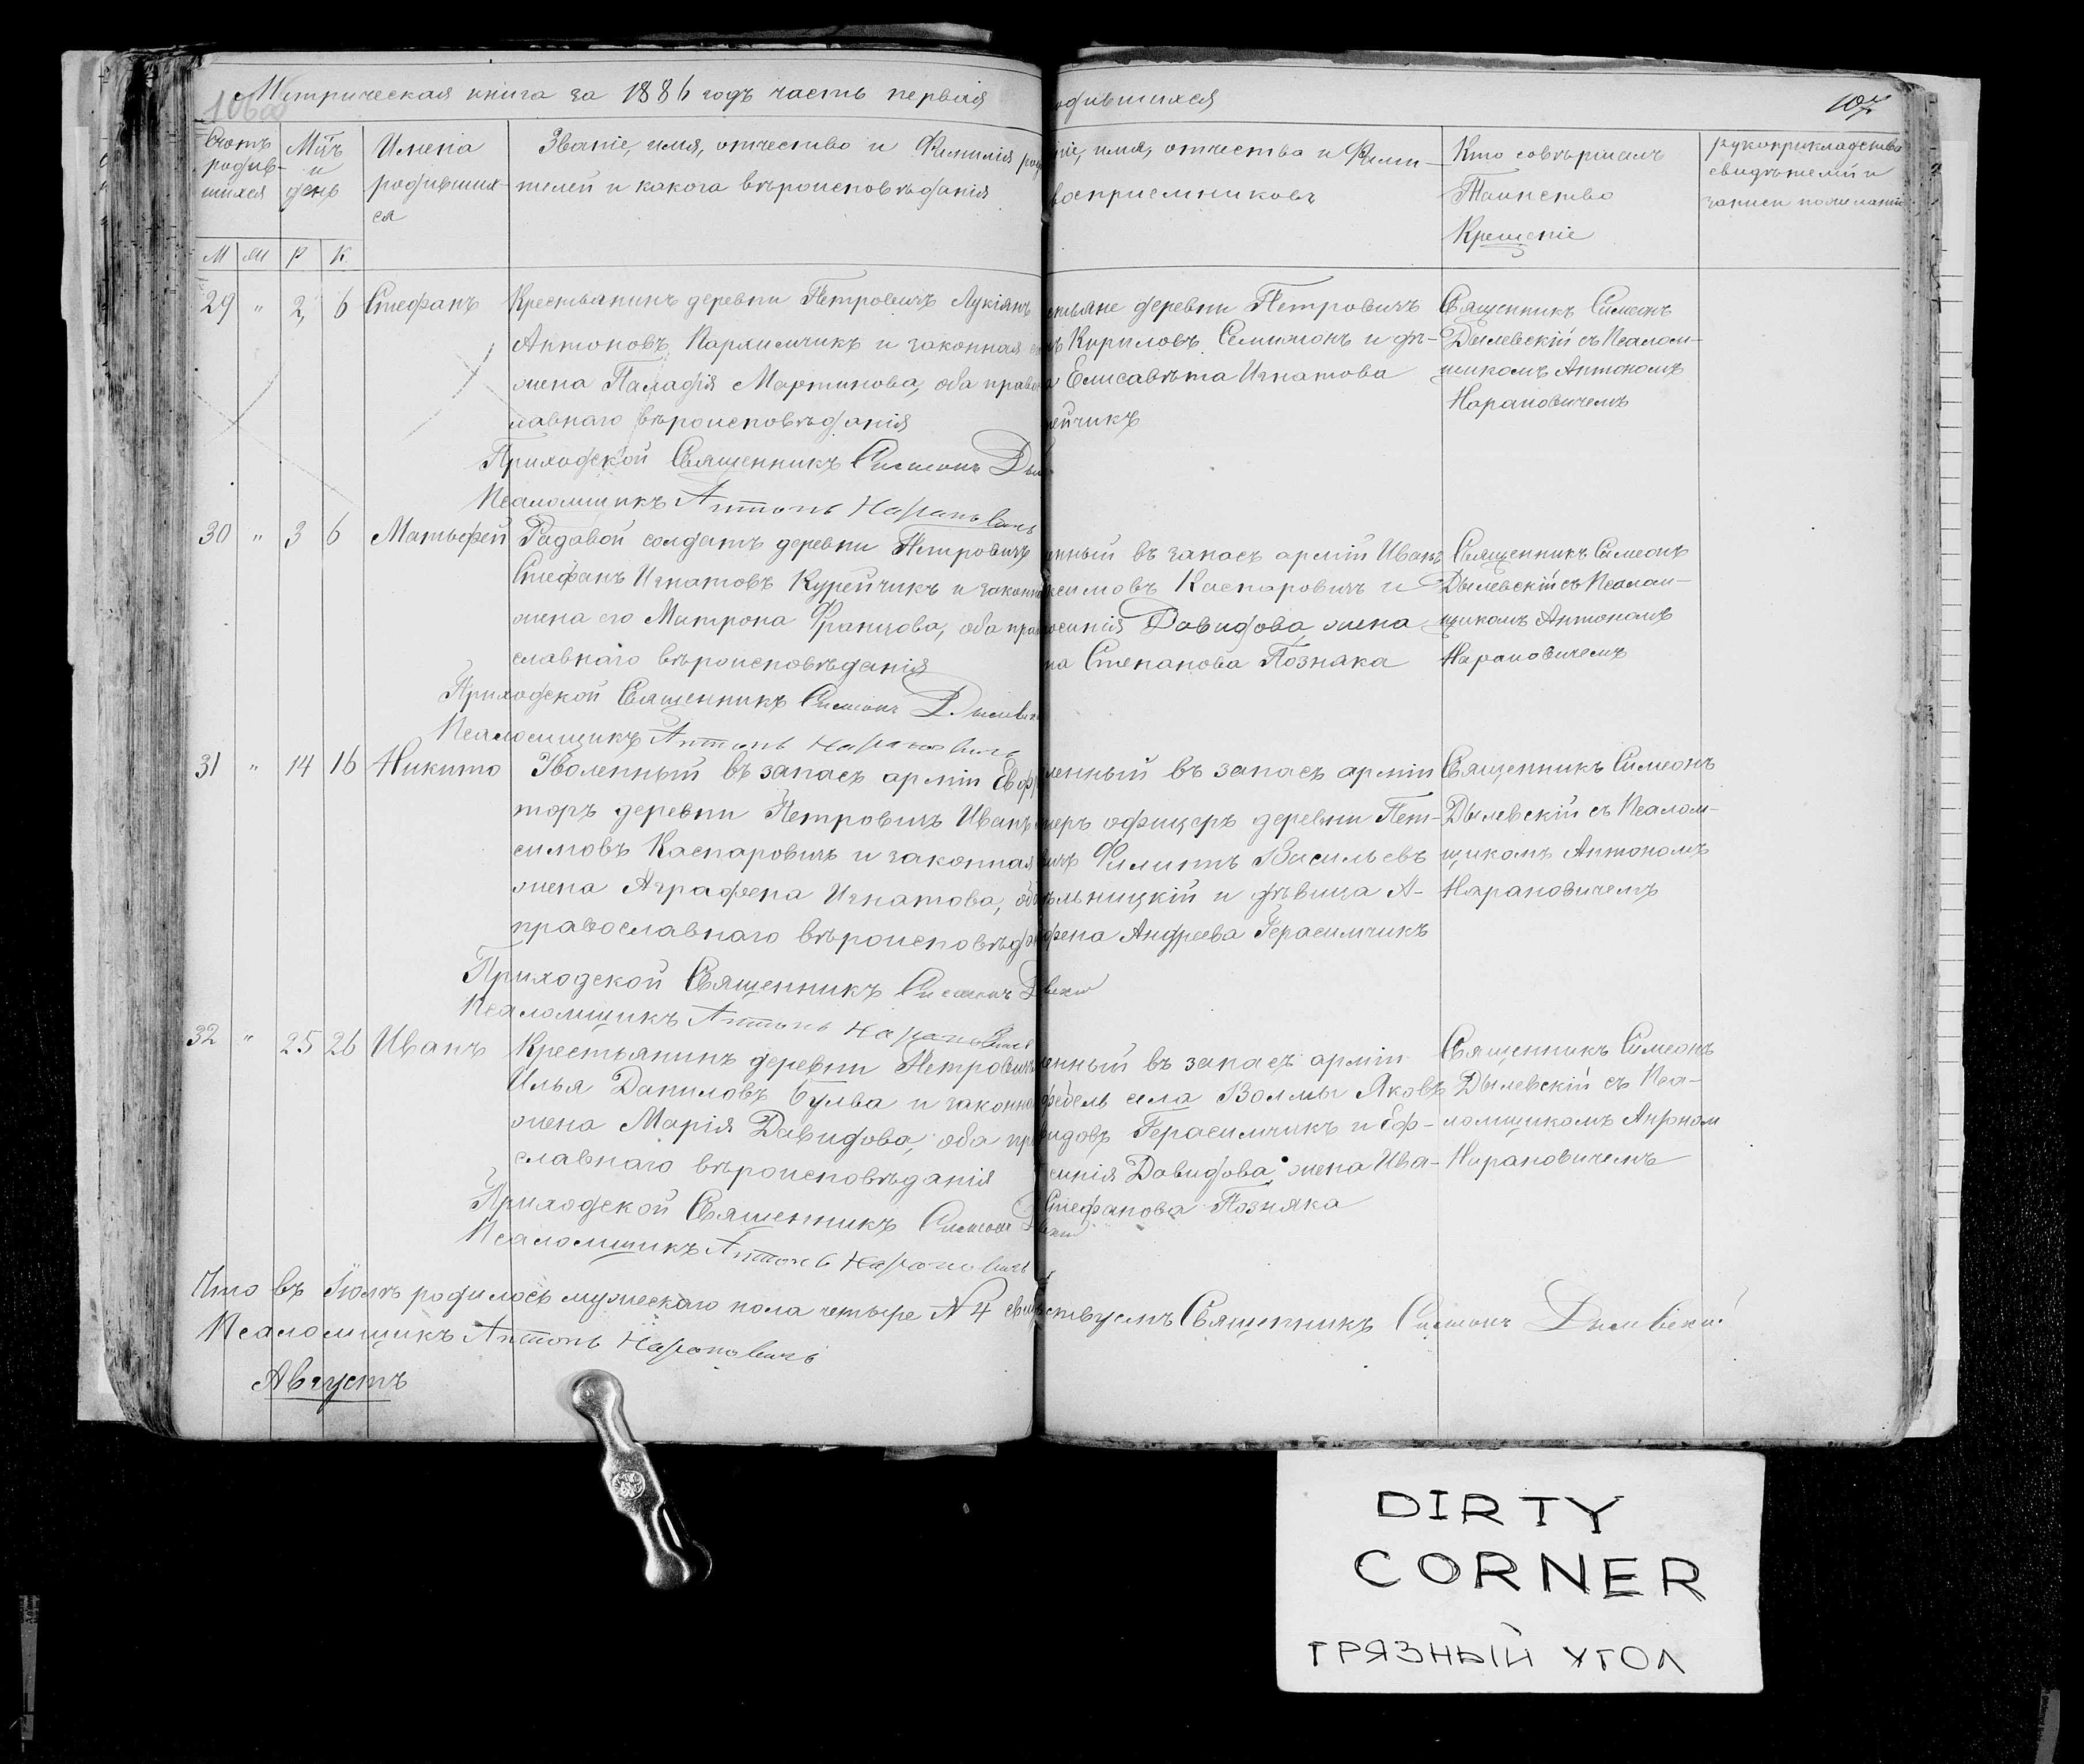 Метрическая книга за 1886 годъ часть первая
одившихся
107
Счотъ родив-шихся
Мѣ҃ъ и день
Имена родивших-ся
Званіе, имя, отчество и Фамилія род
телей и какога вѣроисповѣданія
ніе, имя, отчества и Фами-
воспріемниковъ
Кто совѣршалъ
Таинство
Крещеніе
рукоприкладство
свидѣтелей и
записи по желанію
М
Ж
Р
К
29 " 2, 6 Стефанъ
Крестьянинъ деревни Петровичъ Лукіянъ
Антоновъ Пархимчикъ и законная
жена Палафія Мартинова, оба право
лавнаго вѣроисповѣданія
Приходской Священникъ Симеонъ Ды
Псаломщикъ Антонъ Нарановичъ
стьяне деревни Петровичъ
ъ Кириловъ Селимонъ и дѣ-
а Елисавѣта Игнатова
ейчикъ
Священникъ Симеонъ
Дылевскій съ Псалом-
щикомъ Антономъ
Нарановичемъ
30 " 3 6 Матьфей
Радавой солдатъ деревни Петровичъ
Стефанъ Игнатовъ Курейчикъ и законн
жена его Матрона Францова, оба прав
славнаго вѣроисповѣданія
Приходской Священникъ Симеонъ Дылевск
Псаломщикъ Антонъ Нарановичъ
нный въ запасъ арміи Иванъ
ксимовъ Каспаровичъ и
осинія Давидова жена
на Степанова Позняка
Священникъ Симеонъ
Дылевскій съ Псалом-
щикомъ Антономъ
Нарановичемъ
31 " 14 16 Никито
Уволенный въ запасъ арміи Ефр
торъ деревни Петровичъ Иванъ
симовъ Каспаровичъ и законная
жена Аграфена Игнатова, оба
православнаго вѣроисповѣдан
Приходской Священникъ Симеонъ Д
Псаломщикъ Антонъ Нарановичъ
ленный въ запасъ арміи
теръ офицеръ деревни Пет-
вичъ Филипъ Васильевъ
ѣльницкій и дѣвица А-
фена Андреева Герасимчикъ
Священникъ Симеонъ
Дылевскій съ Псалом-
щикомъ Антономъ
Нарановичемъ
32 " 25 26 Иванъ
Крестьянинъ деревни Петровичъ
Илья Даниловъ Булва и законна
жена Марія Давидова, оба пра
славнаго вѣроисповѣданія
Приходской Священникъ Симеонъ Д
Псаломщикъ Антонъ Нарановичъ
енный въ запасъ арміи
фебель села Волмы Яковъ
видовъ Герасимчикъ и Еф-
синія Давидова жена Ива-
Стефанова Позняка
Священникъ Симеонъ
Дылевскій съ Пса-
ломщикомъ Антоном
Нарановичемъ
Что въ Іюлѣ родилось мужескаго пола четыре № 4 свидѣтельствуемъ Священникъ Симеонъ Дылевскій
Псаломщикъ Антонъ Нарановичъ
Августъ
DIRTY
CORNER
ГРЯЗНЫЙ УГОЛ